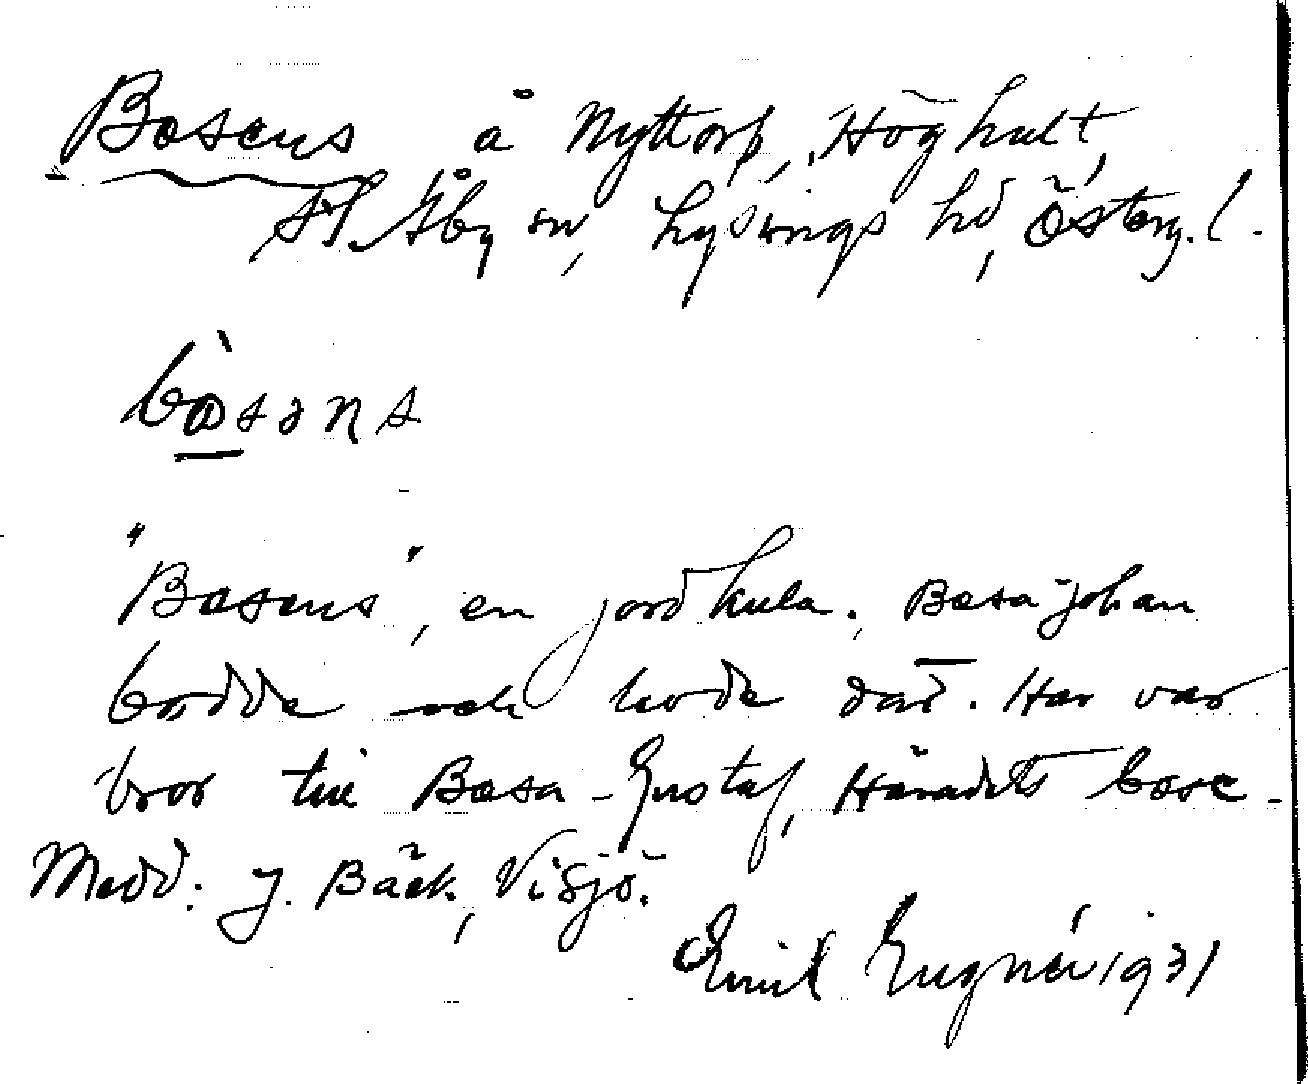 Basens å Nyttorp, Höghult,
St. Åby sn, Lysings hd, Österg. l.
bàsəns
"Basens", en jordkula. Basa-Johan
bodde och hade där. Han var
bror till Basa-Gustaf, Häradets base.
Medd: J. Bäck, Visjö.
Emil Eugnér 1931